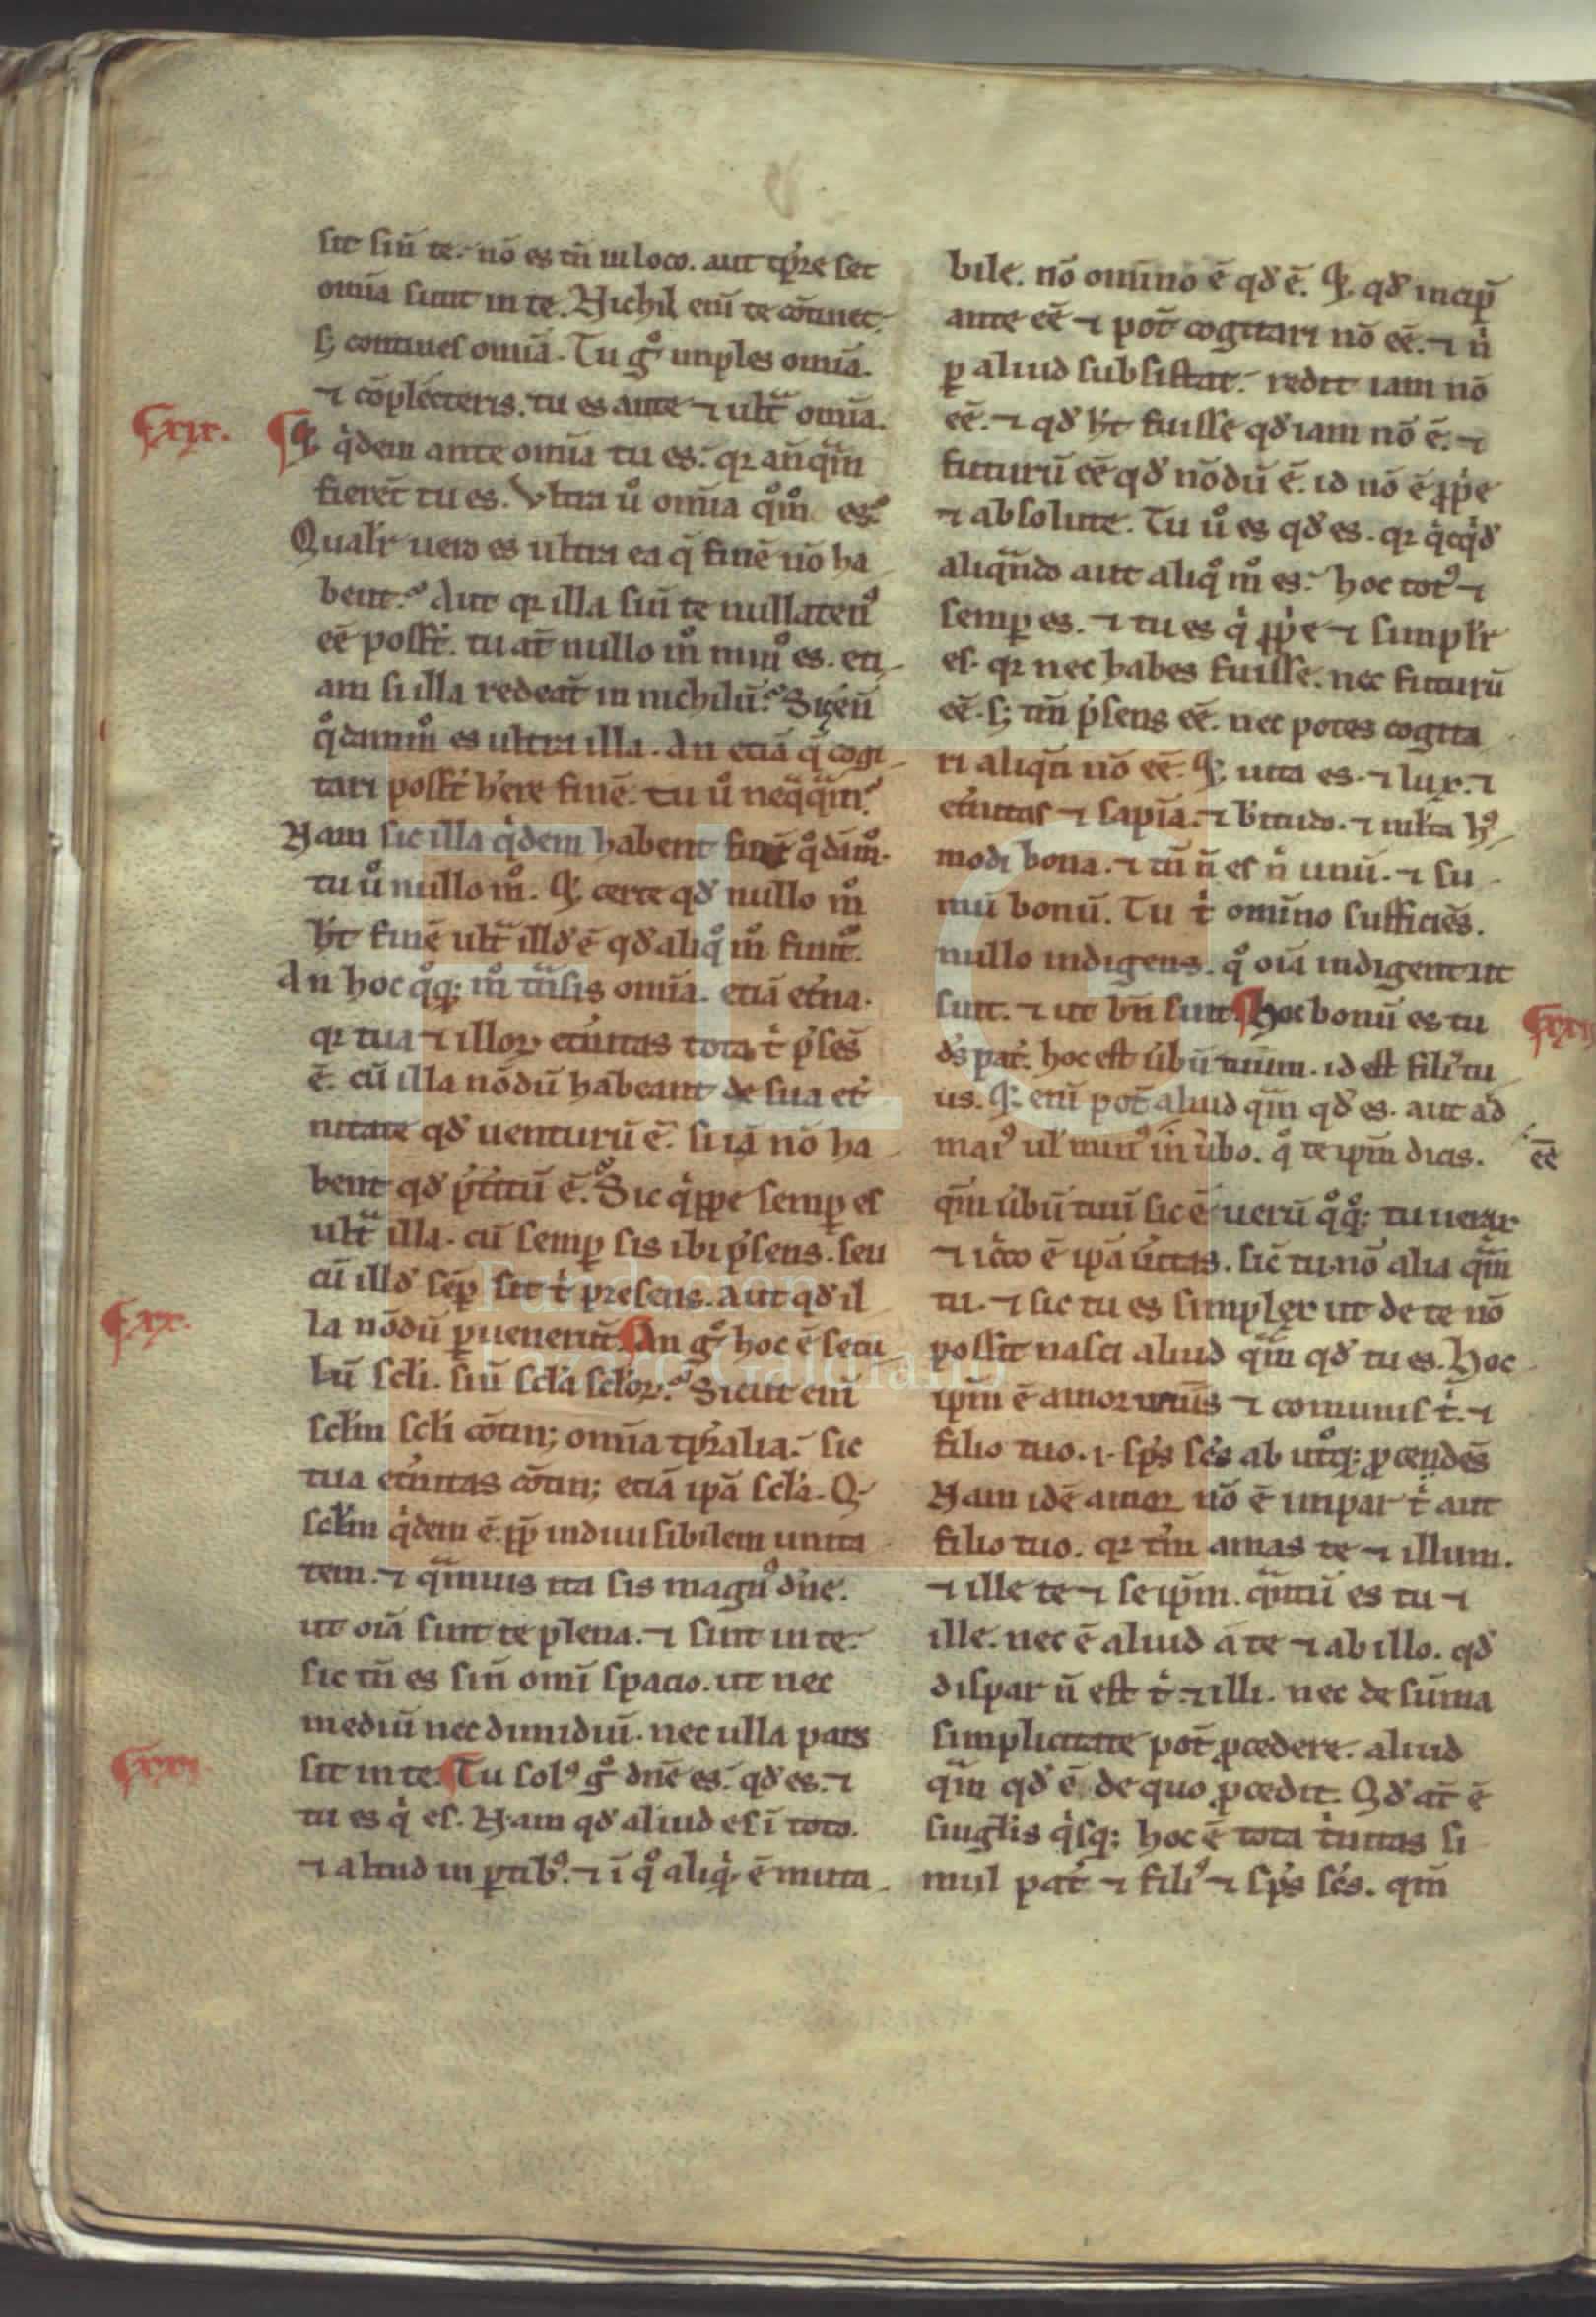 sit sin̄ te. nō es tn̄ in loco. aut tp̄re set
om̄ia sunt in te. Nichil eni te cōtinet.
s; contines omīa. Tu gͦ inples omīa.
⁊ cōplecteris. tu es ante ⁊ ultᵃ omīa.
¶xix. ¶Et qͥdem ante omīa tu es. qꝛ an̄qᵃm
fierēt tu es. Vltra uͦ omīa qͦmͦ es?
Qualr̄ uero es ultra ea q̄ finē nō ha
bent? Aut qꝛ illa sin̄ te nullatenꝰ
eē poss̄t. tu at̄ nullo mͦ minꝰ es. eti
am si illa redeāt in nichilū? Sic eni
qͦdāmmͦ es ultra illa. An etiā q̄ cogi
tari poss̄t h̄ere finē. tu uͦ neq̄qᵃm?
Nam sic illa qͥdem habent finē qͦdāmͦ.
tu uͦ nullo mͦ. Et certe qđ nullo mͦ
h̄t finē ultᵃ illđ ē qđ aliqͦ mͦ finit̄.
An hoc qͦq; mͦ tᵃnsis omīa. etiā et̓na.
qꝛ tua ⁊ illoꝝ et̓nitas tota tͥ p̓sēs
ē. cū illa nōdū habeant de sua et̓
nitate qđ uenturū ē. si iā nō ha
bent qđ p̓t̓itū ē? Sic qͥppe semꝑ es
ultᵃ illa. cū semꝑ sis ibi p̓sens. seu
cū illđ sēꝑ sit tͥ presens. aut qđ il
¶xx. la nōdū ꝑuenerūt. ¶An gͦ hoc ē secu
lū scl̄i. siū scl̄a scl̄oꝝ? Sicut eni
scl̄m scl̄i cōtin; omīa tp̄ralia. sic
tua et̓nitas cōtin; etiā ip̄a scl̄a. Q̄
scl̄m qͥdem ē. ꝓp̄ indiuisibilem unita
tem. ⁊ qᵃmuis ita sis magnꝰ dn̄e.
ut oīa sint te plena. ⁊ sint in te.
sic tn̄ es sin̄ omī spacio. ut nec
mediū nec dimidiū. nec ulla pars
¶xxi. sit in te. ¶Tu solꝰ gͦ dn̄e es. qđ es. ⁊
tu es qͥ es. Nam qđ aliud es ī toto.
⁊ aliud in ꝑtibꝰ. ⁊ ī qͦ aliqͥ ē muta
bile. nō omīno ē qđ ē. Et qđ incip̄
ante eē ⁊ pot̄ cogitari nō eē. ⁊ nͥ
ꝑ aliud subsistat. redit iam nō
eē. ⁊ qđ h̄t fuisse qđ iam nō ē. ⁊
futurū eē qđ nōdū ē. id nō ē ꝓp̓e
⁊ absolute. Tu uͦ es qđ es. qꝛ qͥcqͥđ
aliqᵃndo aut aliqͦ mͦ es. hoc totꝰ ⁊
semꝑ es. ⁊ tu es qͥ ꝓp̓e ⁊ simplr̄
es. qꝛ nec habes fuisse. nec futurū
eē. s; tm̄ p̓sens eē. nec potes cogita
ri aliqn̄ nō eē. Et uita es. ⁊ lux. ⁊
et̓nitas ⁊ sapīa. ⁊ b̄titudo. ⁊ mlta hꝰ
modi bona. ⁊ tn̄ n̄ es nͥ unū. ⁊ su
mū bonū. Tu tͥ omīno sufficiēs.
nullo indigens. qͦ oīa indigent ut
sint. ⁊ ut bn̄ sint. ¶Hoc bonū es tu ¶xxii
đs pat̓. hoc est u̓bū tuum. id est filiꝰ tu
us. Et. eni pot̄ aliud qᵃm qđ es. aut ad
maiꝰ ul̓ minꝰ in u̓bo. qͦ te ip̄m dicis. eē
qm̄ u̓bū tuū sic ē uerū qͦq; tu uerax
⁊ icͦo ē ip̄a u̓itas. sic̄ tu. nō alia qᵃm
tu. ⁊ sic tu es simplex ut de te nō
possit nasci aliud qᵃm qđ tu es. Hoc
ip̄m ē amor unus ⁊ comunis tͥ. ⁊
filio tuo. i. sp̄s sc̄s ab utͦq; ꝓcendēs
Nam idē amor nō ē impar tͥ aut
filio tuo. qꝛ tm̄ amas te ⁊ illum.
⁊ ille te ⁊ se ip̄m. qᵃntū es tu ⁊
ille. nec ē aliud a te ⁊ ab illo. qđ
dispar n̄ est tͥ. ⁊ illi. nec de sūma
simplicitate pot̄ ꝓcedere. aliud
qᵃm qđ ē. de quo ꝓcedit. Qđ at̄ ē
singl̄is qͥsq; hoc ē tota tͥnitas si
mul pat̓ ⁊ filiꝰ ⁊ sp̄s sc̄s. qm̄
FLG
Fundación
Lázaro Galdiano